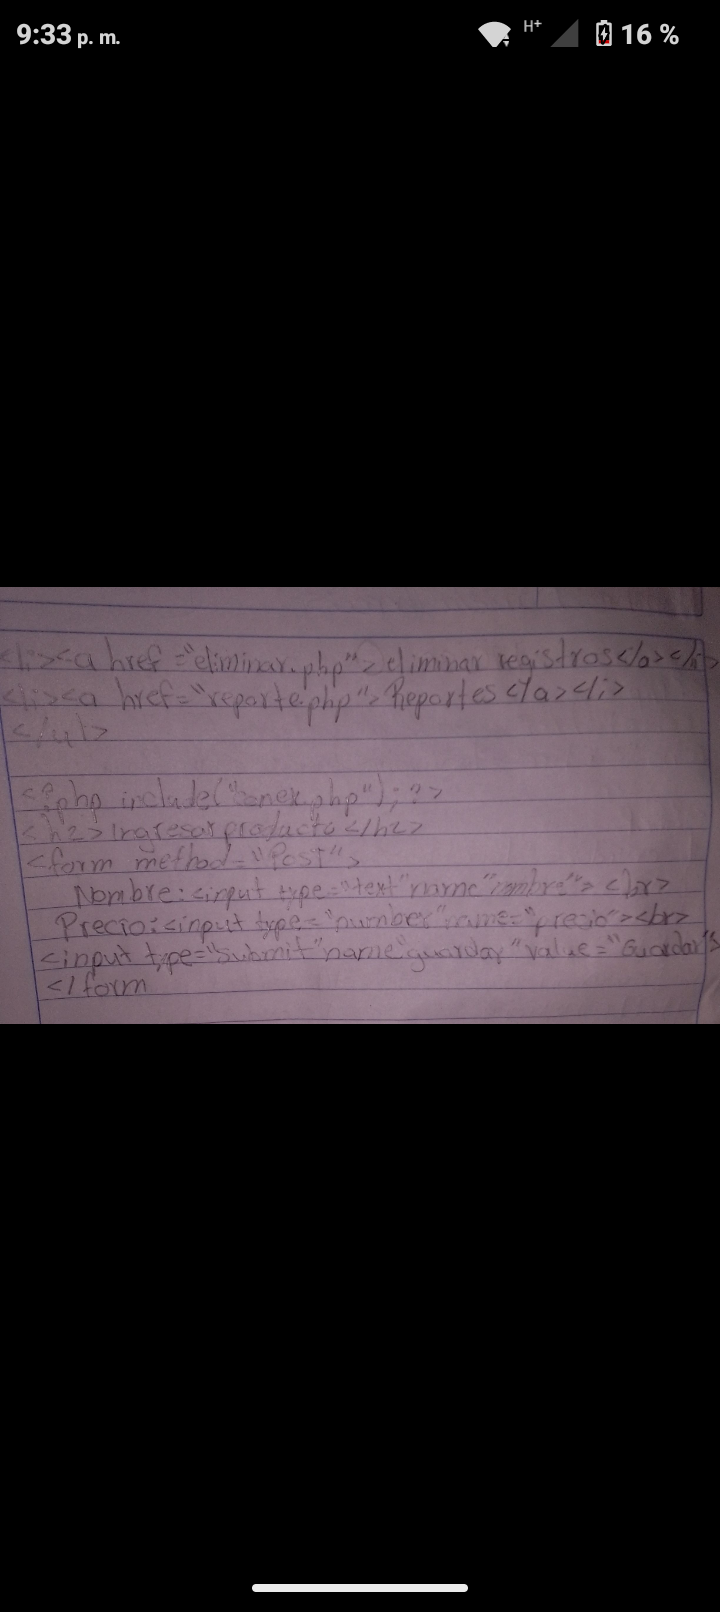 9:33 p. m. H+ 16 %
<li><a href="eliminar.php">eliminar registros</a></li>
<li><a href="reporte.php">Reportes</a></li>
</ul>
<?php include("conex.php"); ?>
<h2>Ingresar producto</h2>
<form method="Post">
Nombre:<input type="text"name"nombre"> <br>
Precio:<input type="number"name="precio"><br>
<input type="submit"name"guardar"value="Guardar">
</form